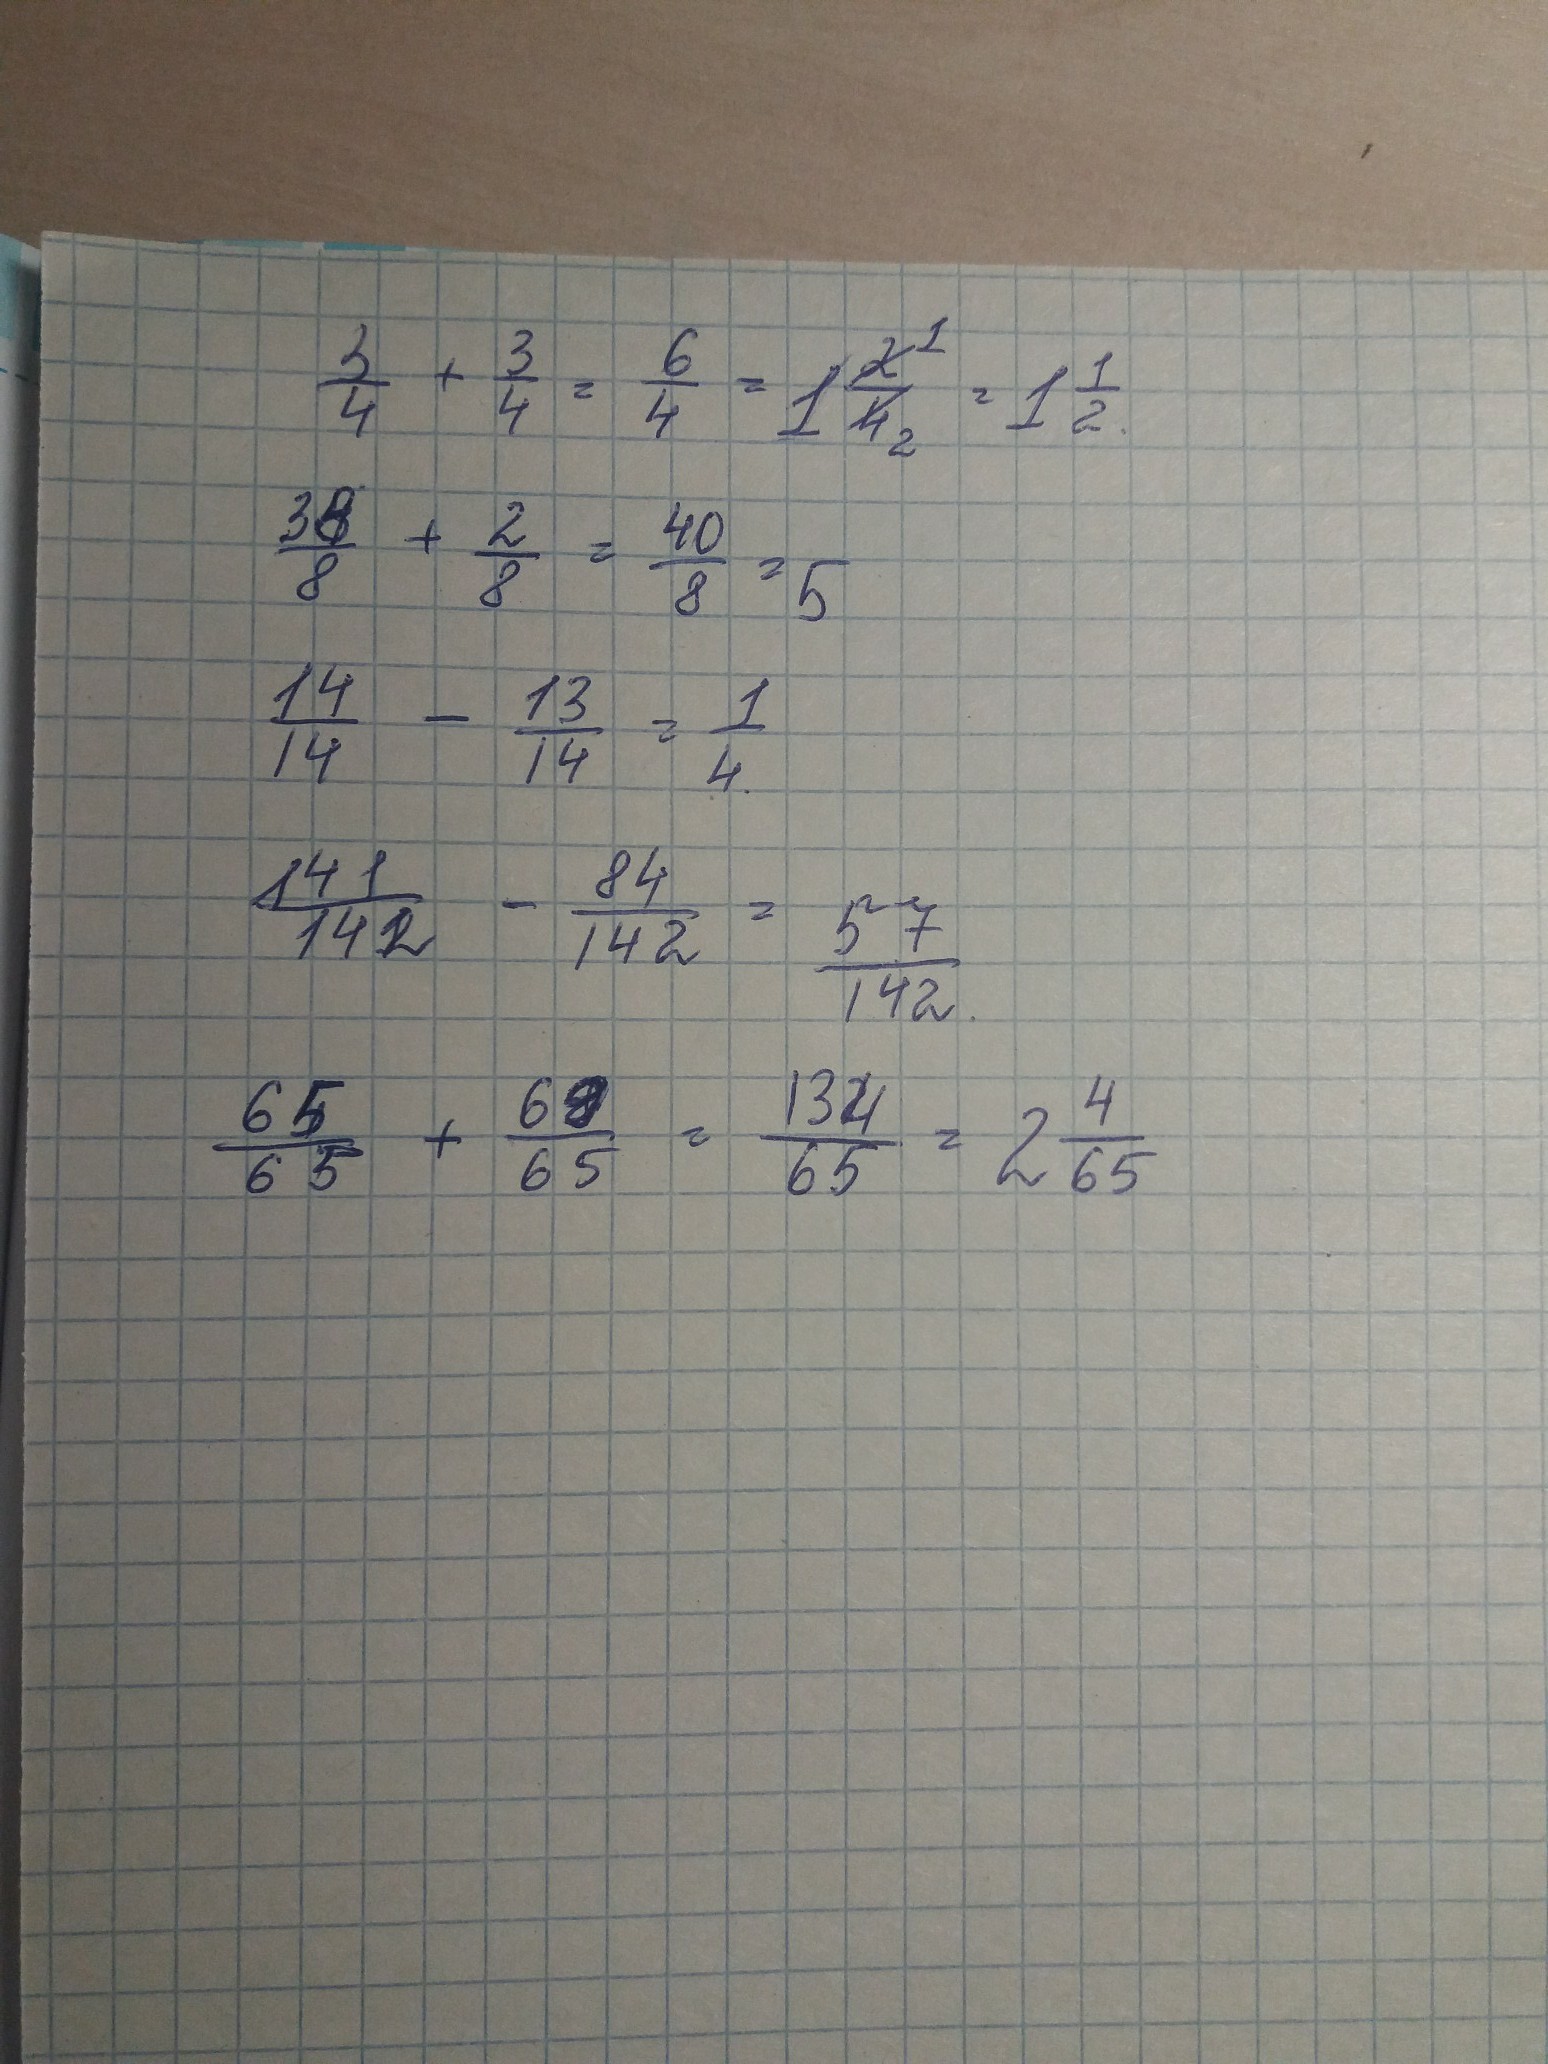 3/4 + 3/4 = 6/4 = 1 2̶¹/4̶₂ = 1 1/2.
38/8 + 2/8 = 40/8 = 5
14/14 - 13/14 = 1/4.
141/142 - 84/142 = 57/142.
65/65 + 69/65 = 134/65 = 2 4/65